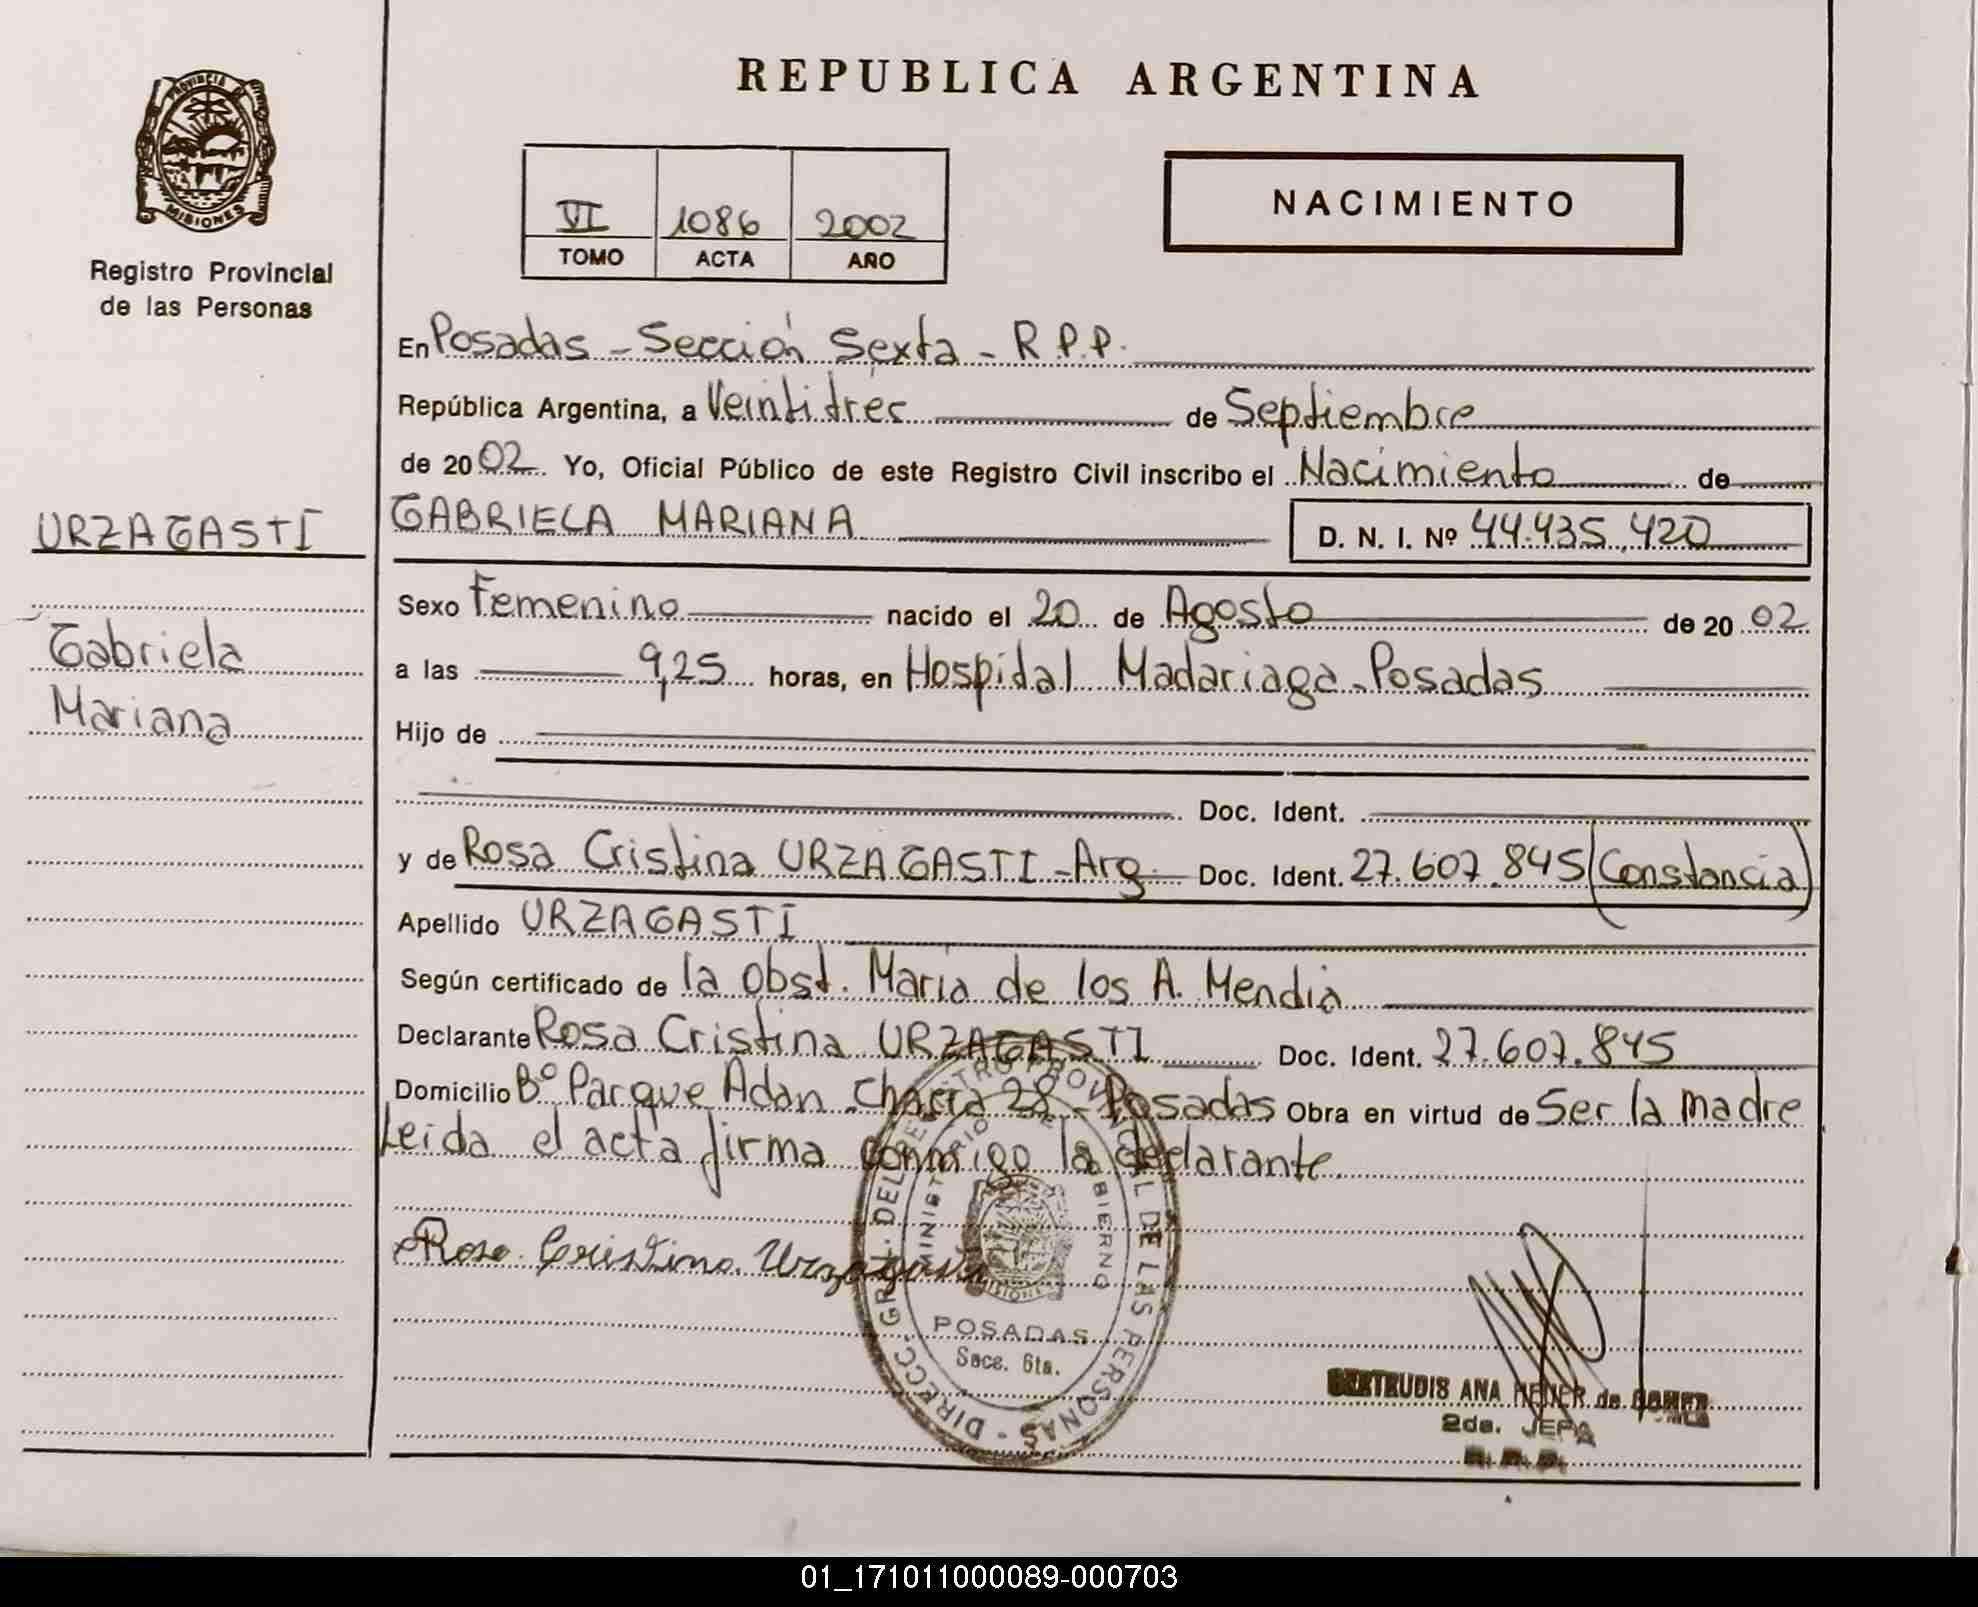 REPUBLICA ARGENTINA
PROVINCIA DE
MISIONES
Registro Provincial
de las Personas
VI 1086 2002
TOMO ACTA AÑO
NACIMIENTO
En Posadas - Sección Sexta - R.P.P.
República Argentina, a Veintitrés de Septiembre
de 20 02 Yo, Oficial Público de este Registro Civil inscribo el Nacimiento de
URZAGASTI
GABRIELA MARIANA D. N. I. Nº 44.435.420
Sexo Femenino nacido el 20 de Agosto de 20 02
Gabriela
Mariana
a las 9,25 horas, en Hospital Madariaga - Posadas
Hijo de
Doc. Ident.
y de Rosa Cristina URZAGASTI - Arg. Doc. Ident. 27.607.845 (Constancia)
Apellido URZAGASTI
Según certificado de la Obst. María de los A. Mendia
Declarante Rosa Cristina URZAGASTI Doc. Ident. 27.607.845
Domicilio Bº Parque Adan - Chacra 28 - Posadas Obra en virtud de Ser la madre
Leida el acta firma conmigo la declarante
Rosa Cristina Urzagasti
DIRECC. GRL. DEL REGISTRO PROVINCIAL DE LAS PERSONAS
MINISTERIO DE GOBIERNO
MISIONES
POSADAS
Secc. 6ta.
GERTRUDIS ANA de
2da. JEFA
R.P.P.
01_171011000089-000703